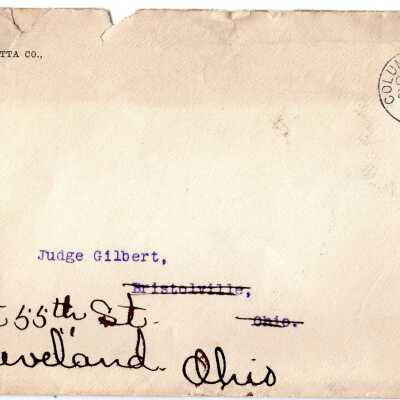 TTA CO.,
COLU
Judge Gilbert,
Bristolville,
Ohio.
t 55th St.
eveland. Ohio